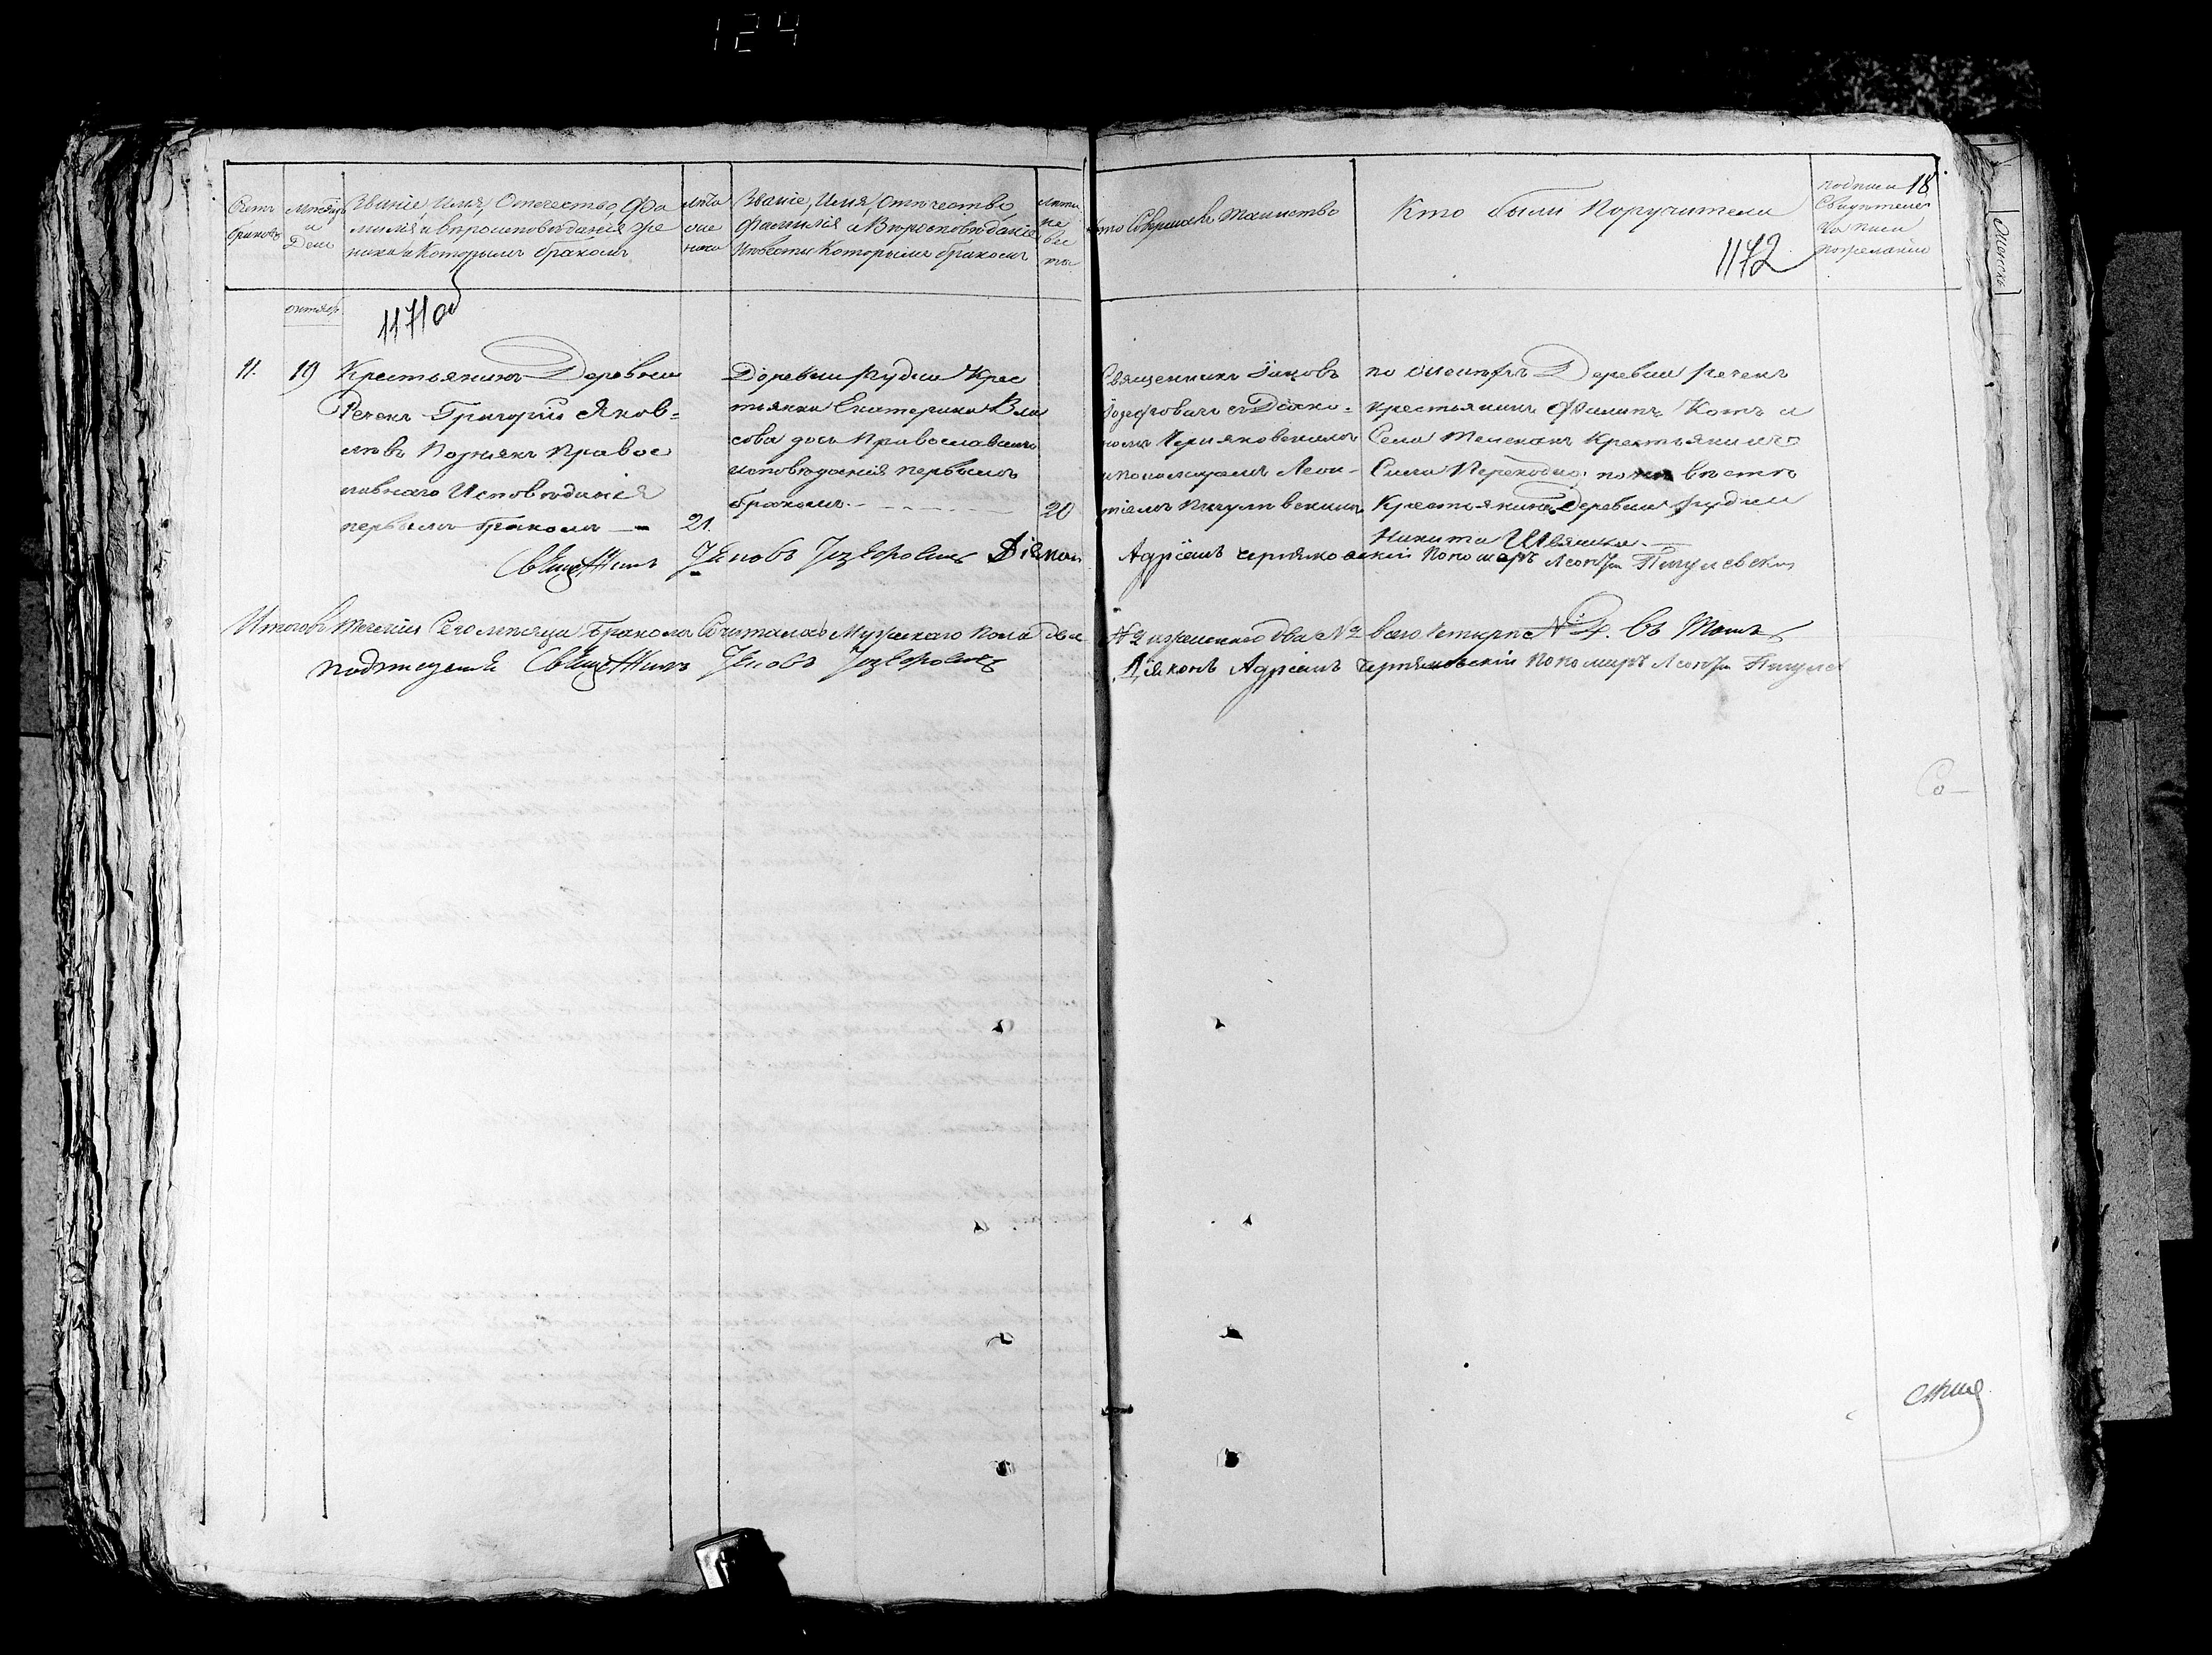 124
Счетъ браковъ
Мѣсяцъ и День
Званіе, Имя, Отечество, Фа
милія и вѣроисповѣданія же
ниха и Которымъ бракомъ
лѣта
же
ниха
Званіе, Имя, Отечество,
Фамилія и Вѣроисповѣданіе
Невѣсты Которымъ бракомъ
Лѣта
не
вѣс
ты
Кто Совершалъ Таинство
Кто были Поручители
1172
18
подписи
Свидѣтелей
записи
по желанію
октябр
1171об
11.
19
Крестьянинъ Деревни
Речекъ Григорій Яков-
левъ Познякъ Правос
лавнаго Исповѣданія
первымъ бракомъ
21.
Деревни Рудни Крес
тьянка Екатерина Вла
сова дочь Православнаго
исповѣданія первымъ
бракомъ
20
Священникъ Іаковъ
Іозефовичъ съ Діако-
номъ Черняковскимъ
и пономаремъ Леон-
тіемъ Пигулевскимъ
по женихѣ Деревни Речекъ
крестьянинъ Филипъ Котъ и
Села Телеханъ Крестьянинъ
по невѣстѣ
Крестьянинъ Деревни Рудни
Никита Швянка
Священникъ Іаковъ Іозефовичъ Діаконъ
Адріанъ Черняковскій Пономарь Леонтій Пигулевскій
Итого въ теченіи Сего мѣсяца Бракомъ Сочеталось Мужескаго пола два
№2 и женскаго два №2 всего Четыре №4. Въ томъ
подписуемся Священникъ Іаковъ Іозефовичъ
Діаконъ Адріанъ Черняковскій Пономарь Леонтій Пигулев
Со-